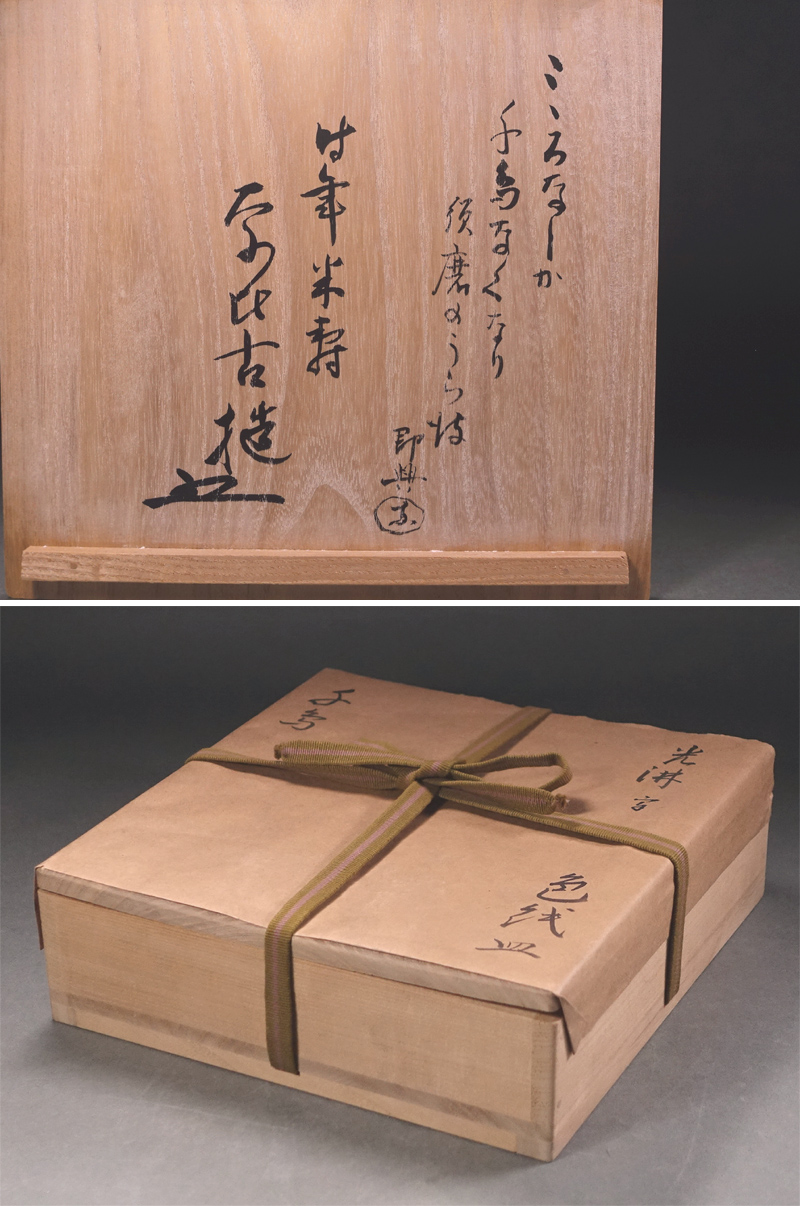 こゝろなしか
千鳥なくなり
須磨のうら波
即興
時年米寿
奈比古
造
千鳥
光淋
色紙
皿